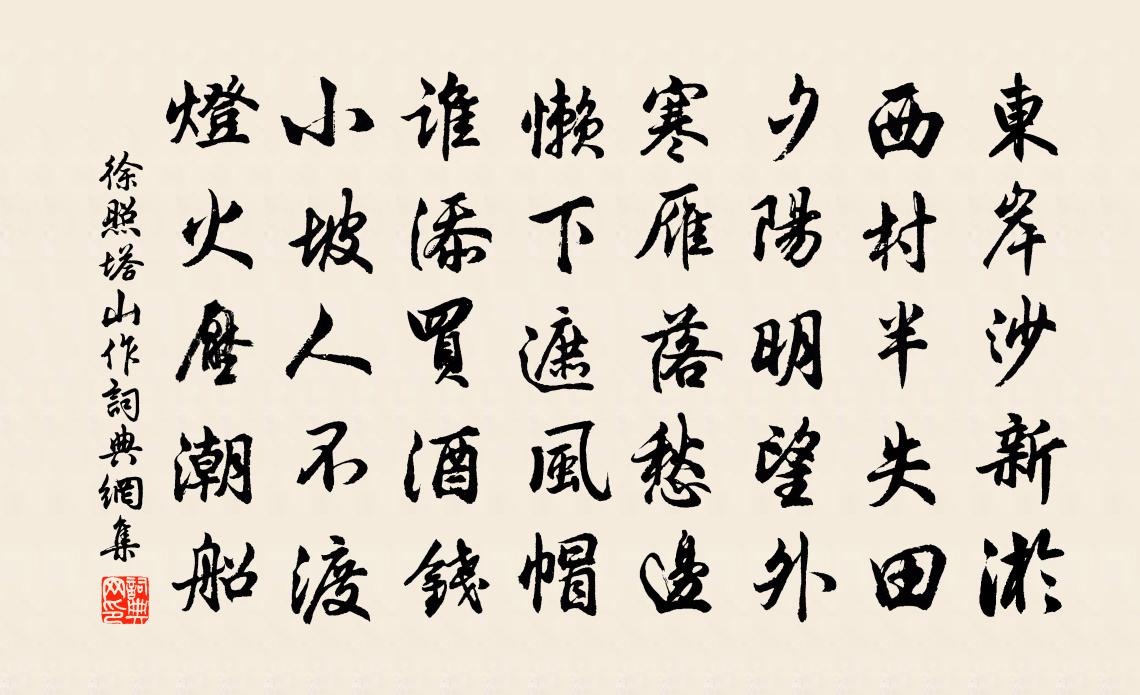 東岸沙新淤
西村半失田
夕陽明望外
寒雁落愁邊
懶下遮風帽
誰添買酒錢
小坡人不渡
燈火壓潮船
徐照塔山作詞典網集
詞典网印